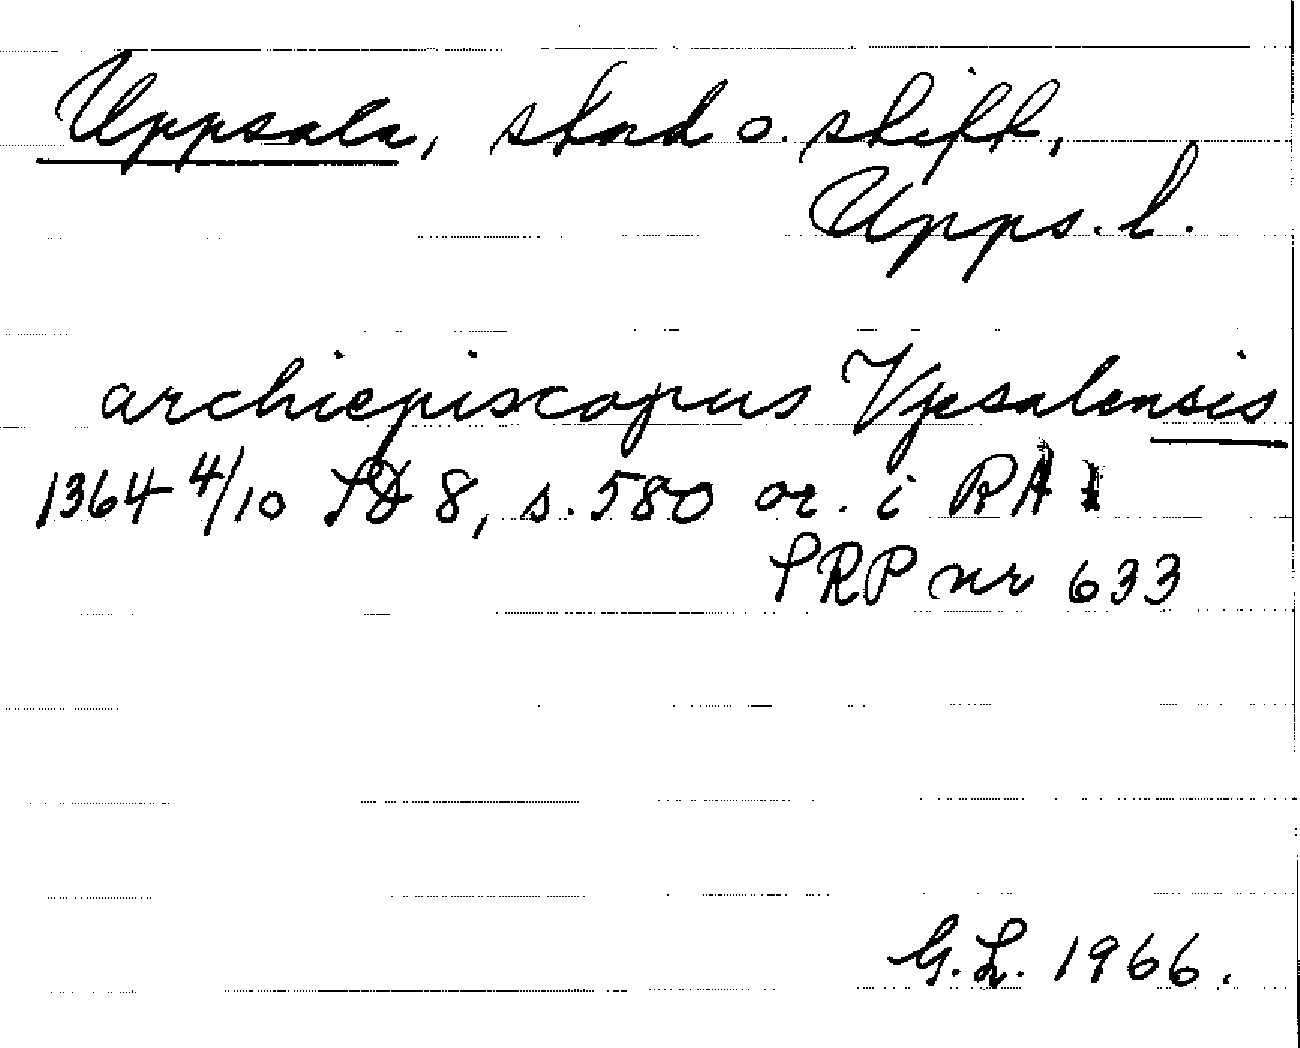 Uppsala, stad o. stift,
Upps. l.
archiepiscopus Vpsalensis
1364 4/10 SD 8, s. 580 or. i RA
SRP nr 633
G.L. 1966.